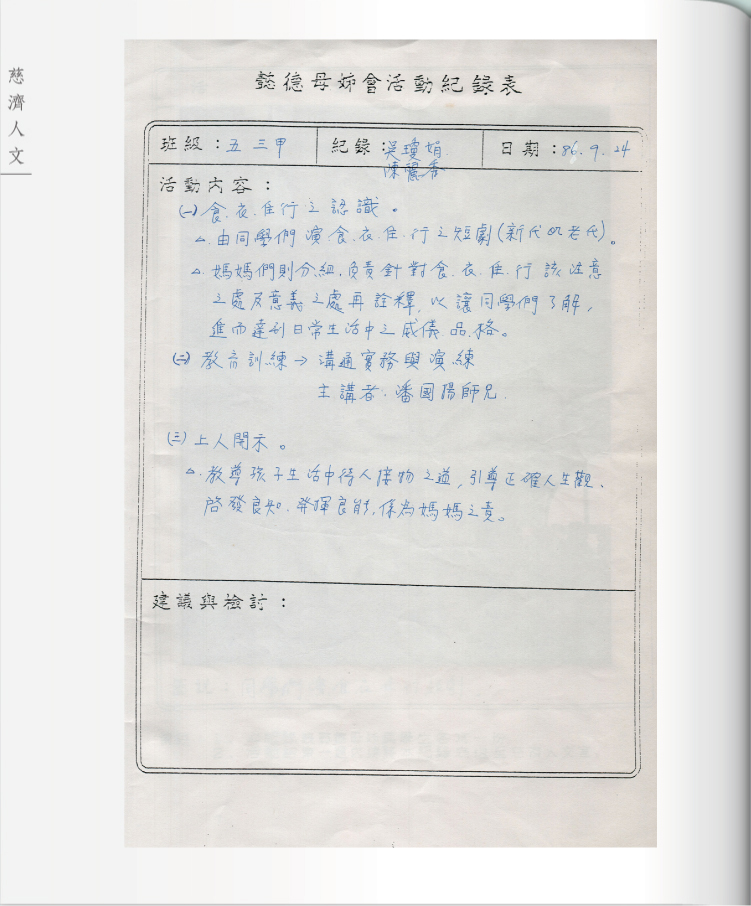 慈濟人文
懿德母姊會活動紀錄表
班級：五 三甲
紀錄：吳瓊娟
陳麗香
日期：86. 9. 24
活動內容：
(一) 食、衣、住行之認識。
△. 由同學們演食、衣、住、行之短劇(新代的老氏)。
△. 媽媽們則分組、負責針對食、衣、住、行該注意
之處及意義之處再詮釋，以讓同學們了解，
進而達到日常生活中之威儀、品、格。
(二) 教育訓練→溝通實務與演練
主講者：潘國揚師兄.
(三) 上人開示。
△. 教導孩子生活中待人接物之道，引導正確人生觀、
啓發良知、發揮良能，係為媽媽之責。
建議與檢討：